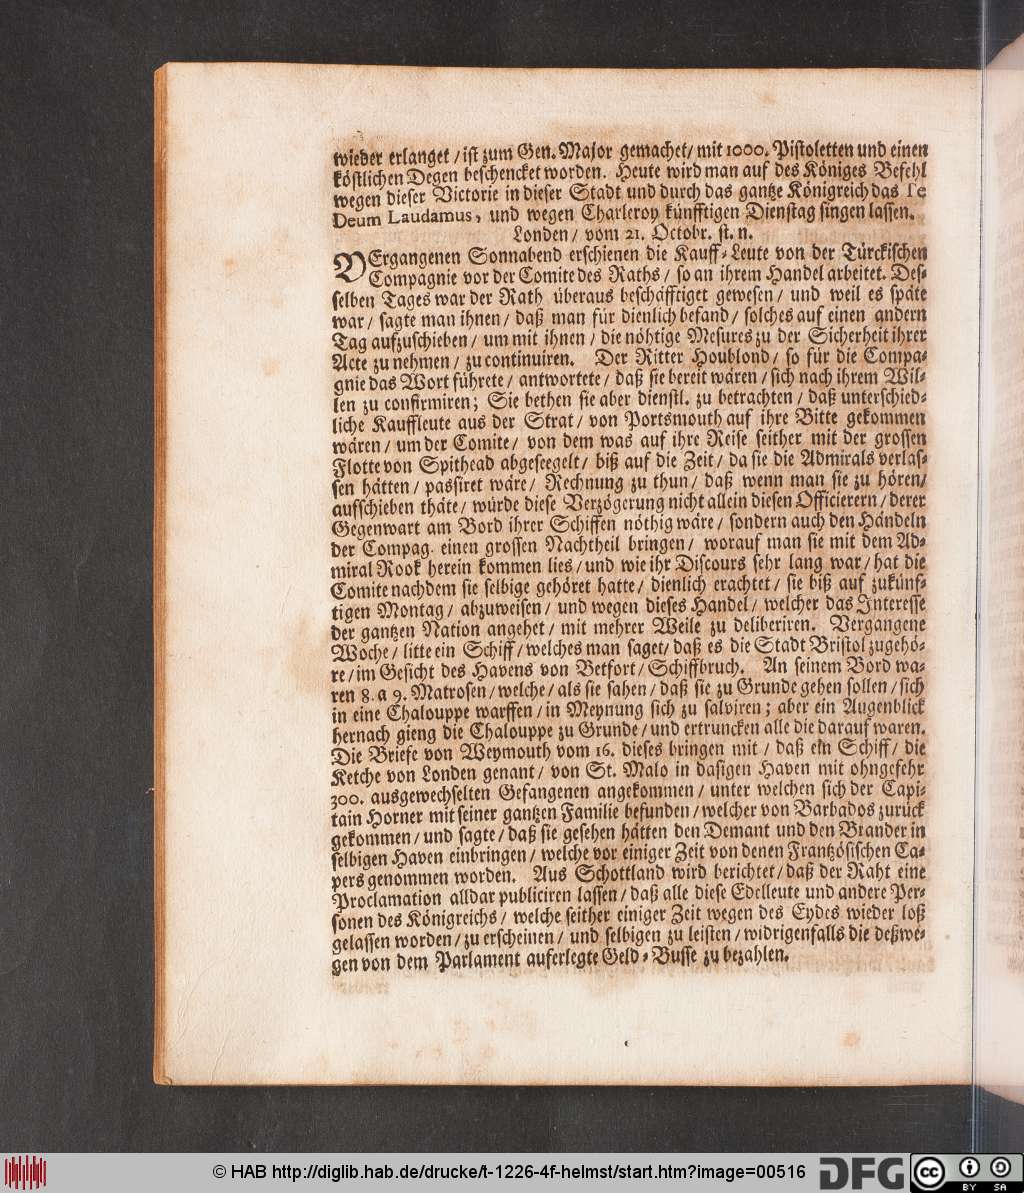 wieder erlanget / ist zum Gen. Major gemachet / mit 1000. Pistoletten und einen
köstlichen Degen beschencket worden. Heute wird man auf des Königes Befehl
wegen dieser Victorie in dieser Stadt und durch das gantze Königreich das Te
Deum Laudamus, und wegen Charleroy künfftigen Dienstag singen lassen.
Londen / vom 21. Octobr. st. n.
VErgangenen Sonnabend erschienen die Kauff-Leute von der Türckischen
Compagnie vor der Comite des Raths / so an ihrem Handel arbeitet. Des-
selben Tages war der Rath überaus beschäfftiget gewesen / und weil es späte
war / sagte man ihnen / daß man für dienlich befand / solches auf einen andern
Tag aufzuschieben / um mit ihnen / die nöhtige Mesures zu der Sicherheit ihrer
Acte zu nehmen / zu continuiren. Der Ritter Houblond / so für die Compa-
gnie das Wort führete / antwortete / daß sie bereit wären / sich nach ihrem Wil-
len zu confirmiren; Sie bethen sie aber dienstl. zu betrachten / daß unterschied-
liche Kauffleute aus der Strat / von Portsmouth auf ihre Bitte gekommen
wären / um der Comite / von dem was auf ihre Reise seither mit der grossen
Flotte von Spithead abgeseegelt / biß auf die Zeit / da sie die Admirals verlas-
sen hätten / passiret wäre / Rechnung zu thun / daß wenn man sie zu hören /
aufschieben thäte / würde diese Verzögerung nicht allein diesen Officierern / derer
Gegenwart am Bord ihrer Schiffen nöthig wäre / sondern auch den Händeln
der Compag. einen grossen Nachtheil bringen / worauf man sie mit dem Ad-
miral Rook herein kommen lies / und wie ihr Discours sehr lang war / hat die
Comite nachdem sie selbige gehöret hatte / dienlich erachtet / sie biß auf zukünf-
tigen Montag / abzuweisen / und wegen dieses Handel / welcher das Interesse
der gantzen Nation angehet / mit mehrer Weile zu deliberiren. Vergangene
Woche / litte ein Schiff / welches man saget / daß es die Stadt Bristol zugehö-
re / im Gesicht des Havens von Betfort / Schiffbruch. An seinem Bord wa-
ren 8. a 9. Matrosen / welche / als sie sahen / daß sie zu Grunde gehen sollen / sich
in eine Chalouppe warffen / in Meynung sich zu salviren; aber ein Augenblick
hernach gieng die Chalouppe zu Grunde / und ertruncken alle die darauf waren.
Die Briefe von Weymouth vom 16. dieses bringen mit / daß ein Schiff / die
Ketche von Londen genant / von St. Malo in dasigen Haven mit ohngefehr
300. ausgewechselten Gefangenen angekommen / unter welchen sich der Capi-
tain Horner mit seiner gantzen Familie befunden / welcher von Barbados zurück
gekommen / und sagte / daß sie gesehen hätten den Demant und den Brander in
selbigen Haven einbringen / welche vor einiger Zeit von denen Frantzösischen Ca-
pers genommen worden. Aus Schottland wird berichtet / daß der Raht eine
Proclamation alldar publiciren lassen / daß alle diese Edelleute und andere Per-
sonen des Königreichs / welche seither einiger Zeit wegen des Eydes wieder loß
gelassen worden / zu erscheinen / und selbigen zu leisten / widrigenfalls die deßwe-
gen von dem Parlament auferlegte Geld-Busse zu bezahlen.
© HAB http://diglib.hab.de/drucke/t-1226-4f-helmst/start.htm?image=00516 DFG cc BY SA